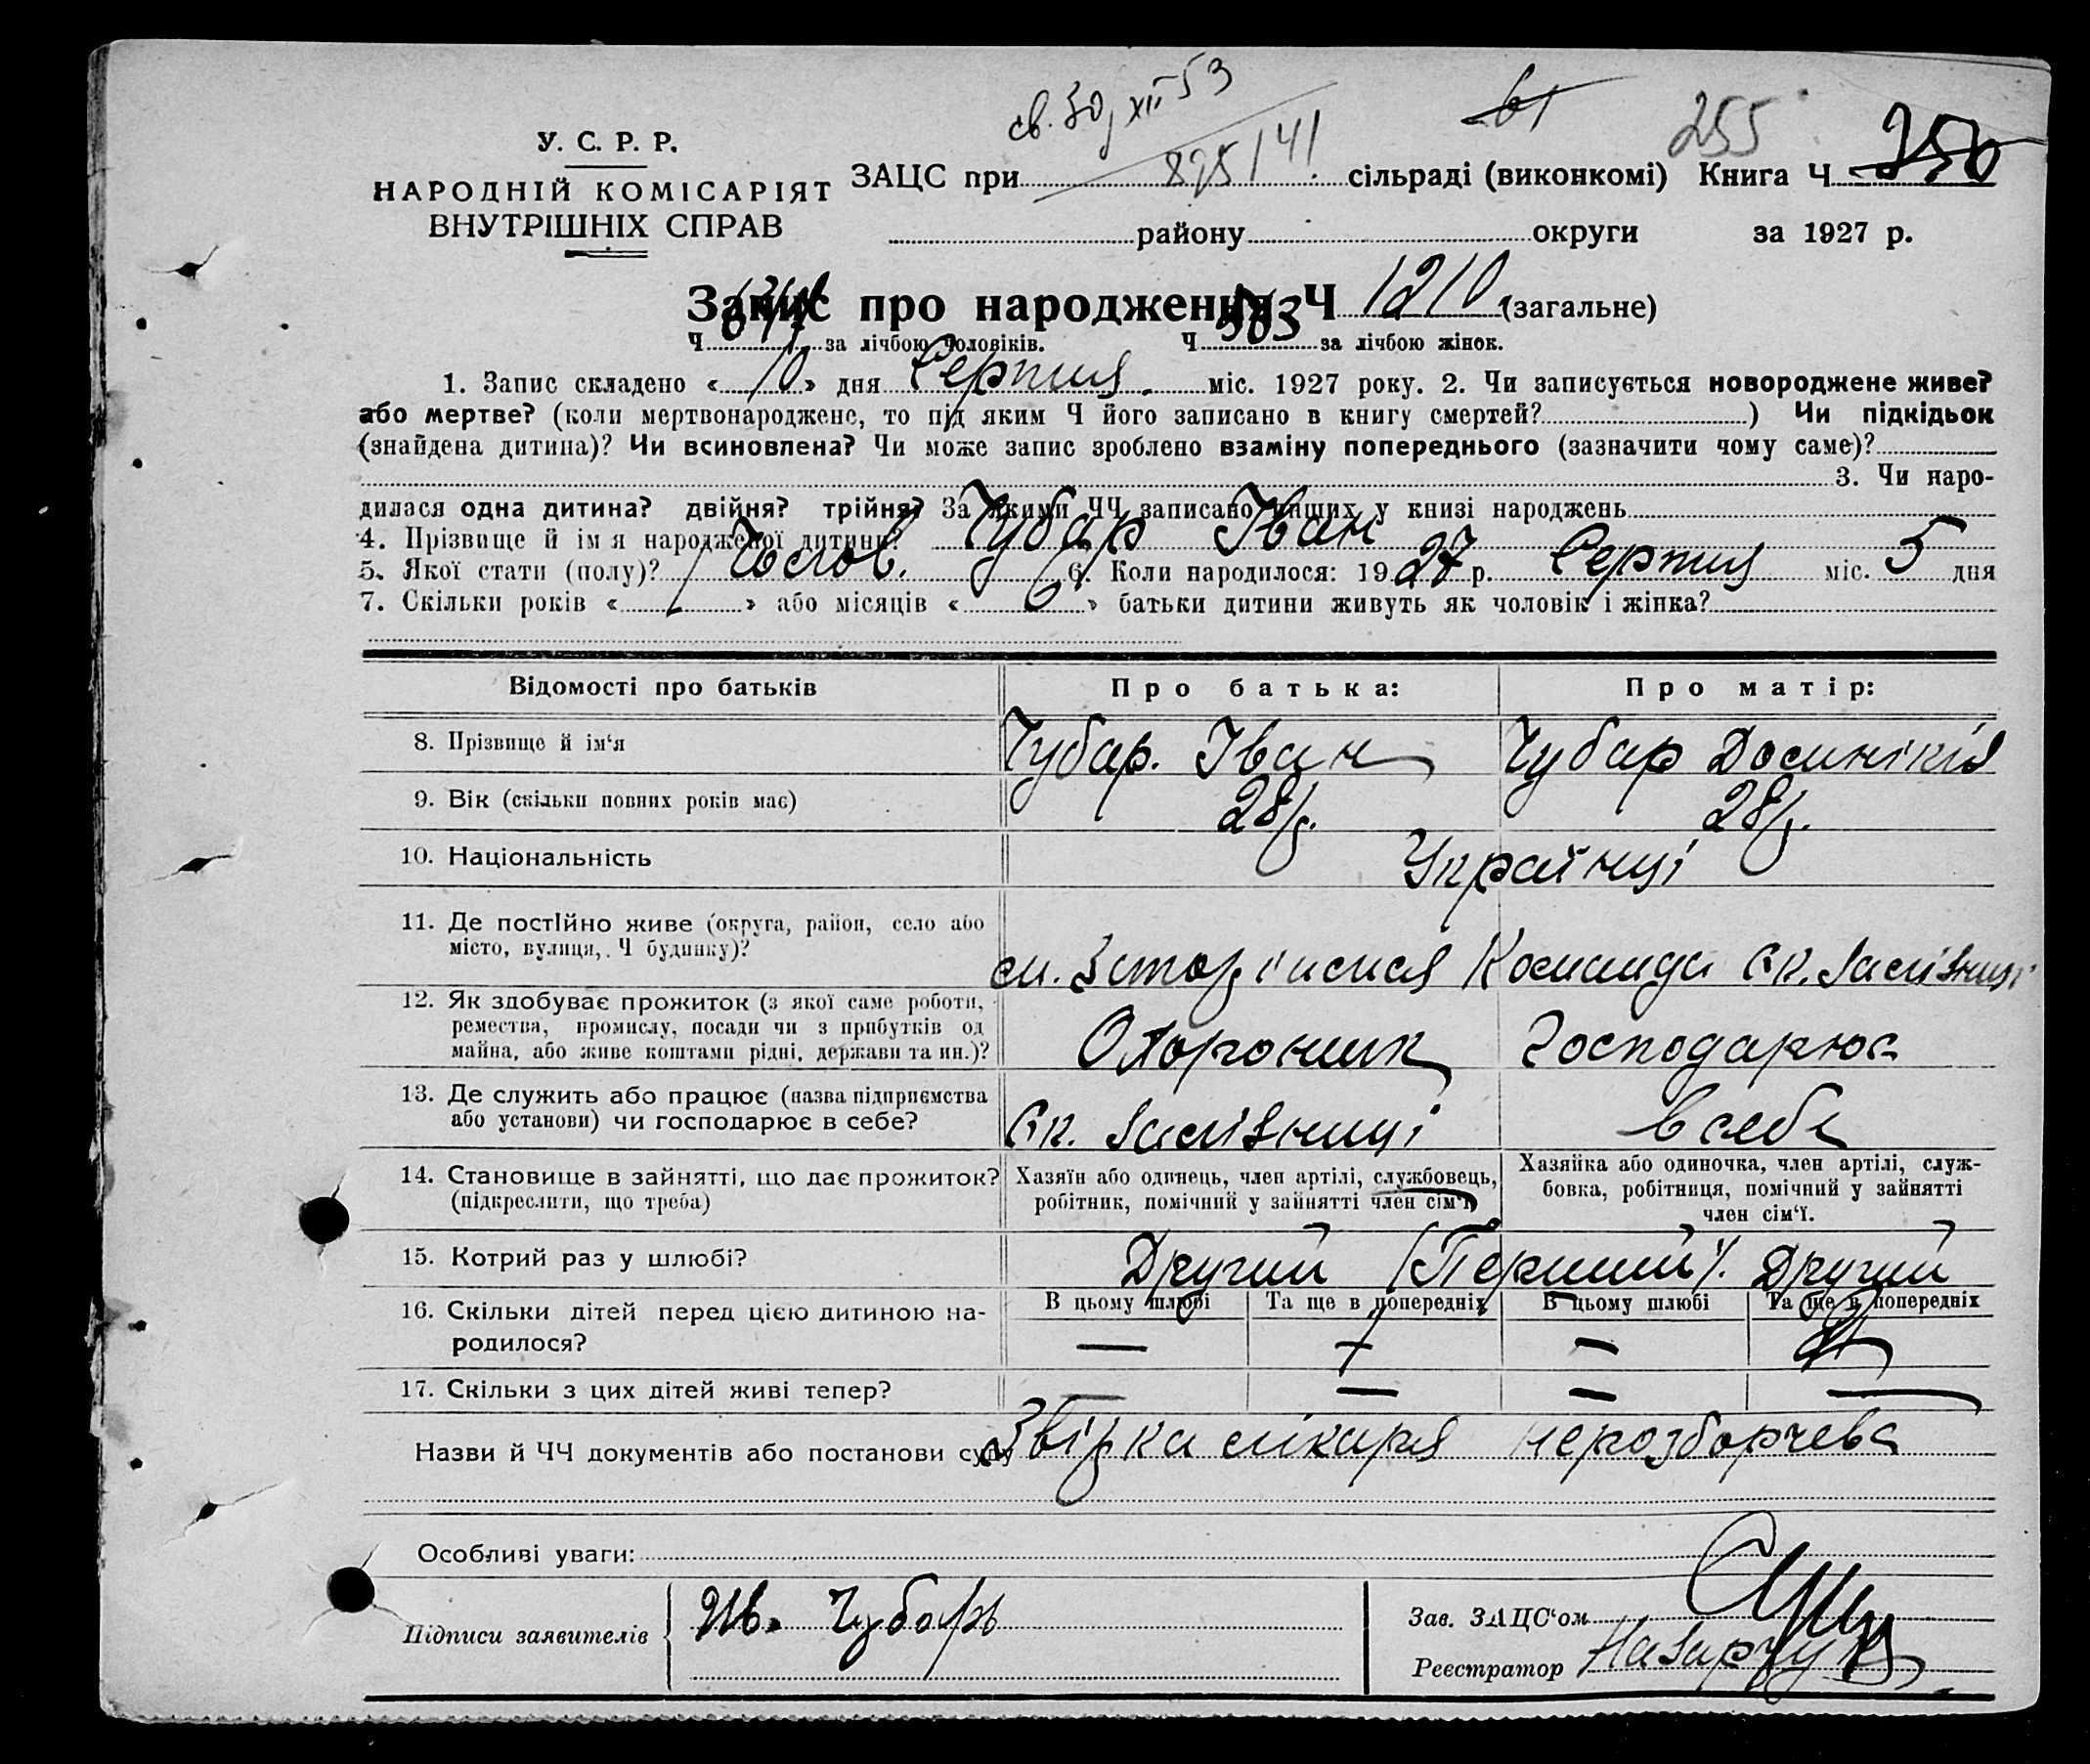 св. 30/XII 53
61
255
У. С. Р. Р.
НАРОДНІЙ КОМІСАРІЯТ
ВНУТРІШНІХ СПРАВ
ЗАЦС при 825/41 сільраді (виконкомі) Книга Ч 250
району округи за 1927 р.
Запис про народження Ч 1210 (загальне)
Ч за лічбою чоловіків. Ч 563 за лічбою жінок.
1. Запис складено « 10 » дня Серпня міс. 1927 року. 2. Чи записується новороджене живе?
або мертве? (коли мертвонароджене, то під яким Ч його записано в книгу смертей? ) Чи підкідьок
(знайдена дитина)? Чи всиновлена? Чи може запис зроблено взаміну попереднього (зазначити чому саме)?
3. Чи наро-
дилася одна дитина? двійня? трійня? За якими ЧЧ записано инших у книзі народжень
4. Прізвище й ім я народженої дитини? Чубар Іван
5. Якої стати (полу)? Чолов. 6. Коли народилося: 1927 р. Серпня міс. 5 дня
7. Скільки років « 1 » або місяців « 6 » батьки дитини живуть як чоловік і жінка?
Відомості про батьків Про батька: Про матір:
8. Прізвище й ім‘я Чубар. Іван Чубар Домнікія
9. Вік (скільки повних років має) 28 р. 28 р.
10. Національність Українці
11. Де постійно живе (округа, район, село або
місто, вулиця, Ч будинку)? Команда
12. Як здобуває прожиток (з якої саме роботи,
ремества, промислу, посади чи з прибутків од
майна, або живе коштами рідні, держави та ин.)? Охороник Господарює
13. Де служить або працює (назва підприємства
або установи) чи господарює в себе? Зал<br>ізниці в себе
14. Становище в зайнятті, що дає прожиток?
(підкреслити, що треба)
Хазяїн або одинець, член артілі, службовець,
робітник, помічний у зайнятті член сім‘ї
Хазяйка або одиночка, член артілі, служ-
бовка, робітниця, помічний у зайнятті
член сім‘ї.
15. Котрий раз у шлюбі? Другий (Перший). Другий
16. Скільки дітей перед цією дитиною на-
родилося?
В цьому шлюбі Та ще в попередніх В цьому шлюбі Та ще в попередніх
— 1 —
17. Скільки з цих дітей живі тепер? — — — —
Назви й ЧЧ документів або постанови суду Звідка лікаря нерозборчева
Особливі уваги:
Підписи заявителів Ив. Чубарь
Зав. ЗАЦС‘ом
Реєстратор Назарчук